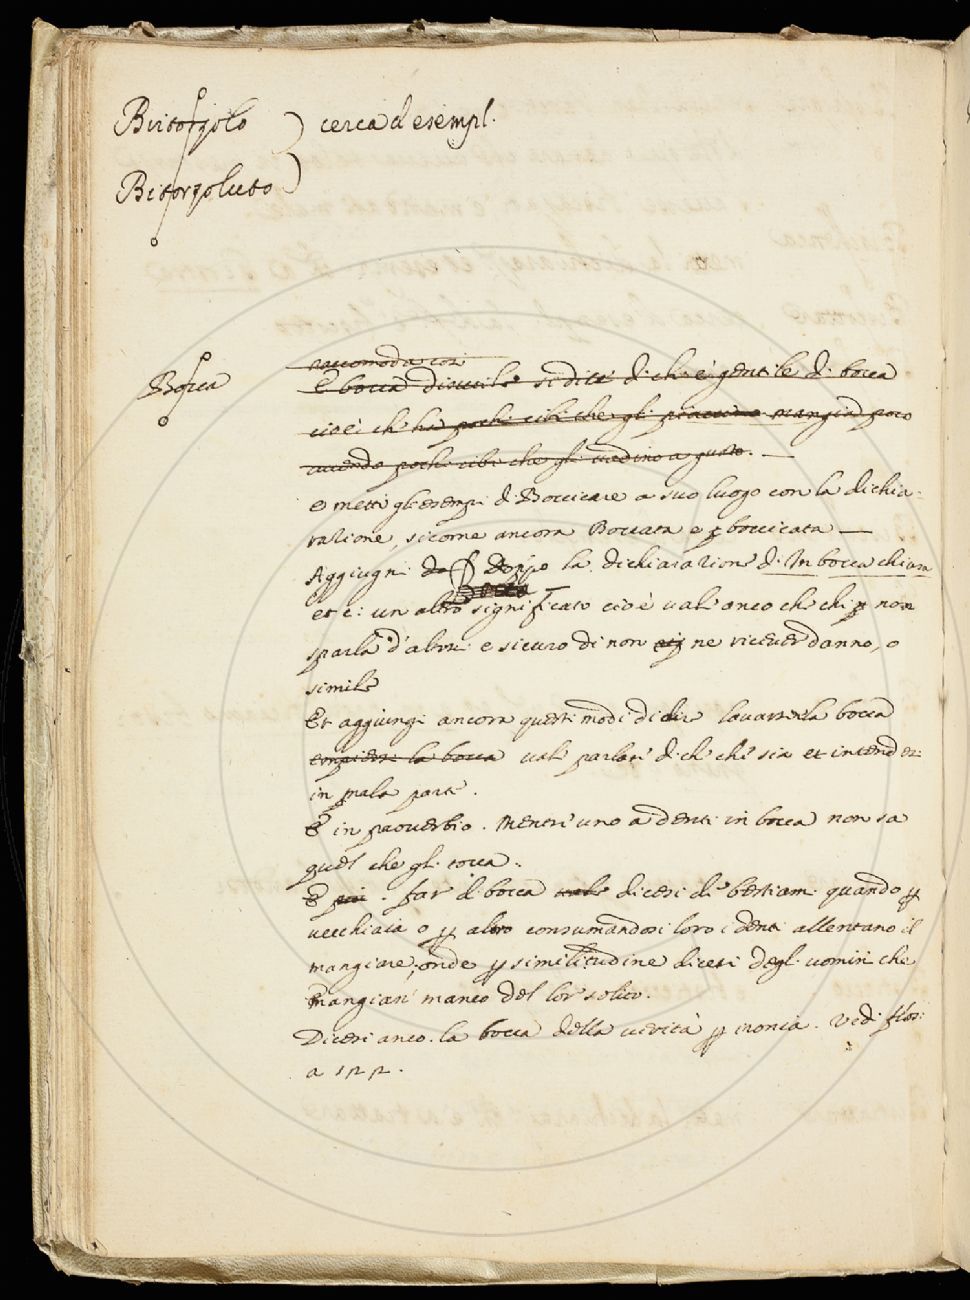 Bitorzolo cerca d esempl.
Bitorzoluto
Bocca
raccomoda cosi
E bocca disutile si dice di chi è gentile di bocca
cioè ch ha pochi cibi che gli piaccino mangia poco
avendo pochi cibi che gli vadino a gusto.
e metti gl esempi di Boccicare a suo luogo con la dichia-
ratione, sicome ancora Boccata e boccicata
Aggiugni doppo la dichiaratione di In bocca chiusa
et c: un altro significato cioè vale anco che chi non
sparla d'altri è sicuro di non ne ricever danno, o
simile
Et aggiungi ancora questi modi di dire lavarsi la bocca
empiersi la bocca vale parlare di ch che sia et intendesi
in mala parte.
E in proverbio. Mentre uno a denti in bocca non sa
quel che gli tocca.
E poi. far di bocca vale dicesi di bestiami quando p
vecchiaia o p altro consumandosi loro i denti allentano il
mangiare, onde p similitudine dicesi degl uomini che
mangian manco del lor solito.
Dicesi anco. la bocca della verità p ironia. Vedi flos:
a 122.